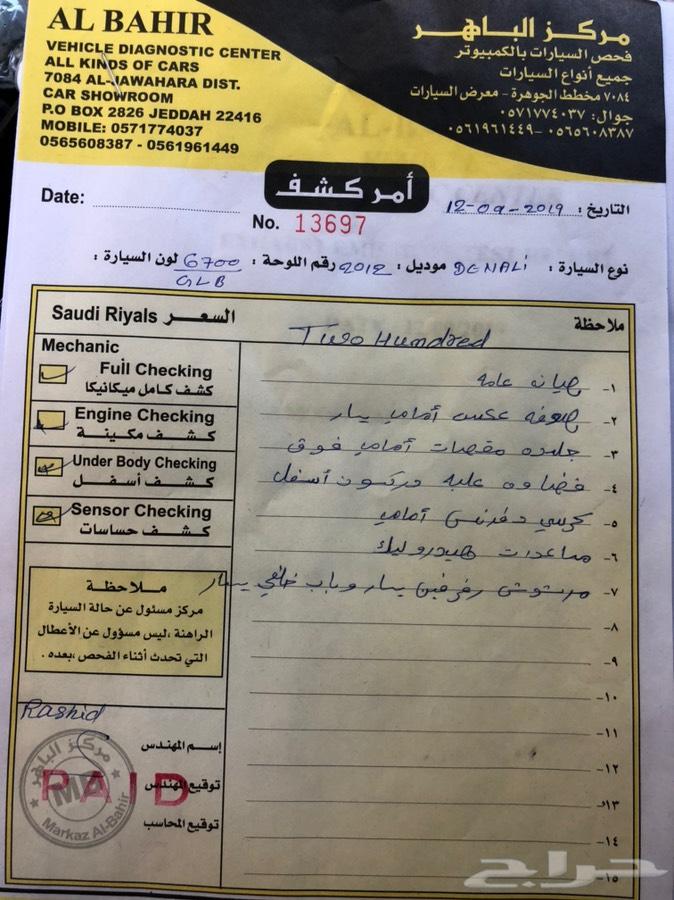 AL BAHIR
VEHICLE DIAGNOSTIC CENTER
ALL KINDS OF CARS
7084 AL-JAWAHARA DIST.
CAR SHOWROOM
P.O BOX 2826 JEDDAH 22416
MOBILE: 0571774037
0565608387 - 0561961449
مركز الباهر
فحص السيارات بالكمبيوتر
جميع أنواع السيارات
٧٠٨٤ مخطط الجوهرة - معرض السيارات
جوال: ٠٥٧١٧٧٤٠٣٧
٠٥٦٥٦٠٨٣٨٧ - ٠٥٦١٩٦١٤٤٩
أمر كشف
Date:
No. 13697
التاريخ : 12-09-2019
نوع السيارة : DENALi موديل : 2012 رقم اللوحة : 6700 لون السيارة :
GLB
Saudi Riyals السعر
Two Hundred
ملاحظة
Mechanic
Full Checking
كشف كامل ميكانيكا
Engine Checking
كشف مكينة
Under Body Checking
كشف أسفل
Sensor Checking
كشف حساسات
١- صيانه عامه
٢- عكس أمامي يسار
٣- جلده مقصات أمامي فوق
٤- علبه دركسون أسفل
٥- كرسي دفرنس أمامي
٦- مساعدات هيدروليك
٧- مرشوش رفرفين يسار وباب خلفي يسار
٨-
٩-
١٠-
١١-
١٢-
١٣-
١٤-
١٥-
ملاحظة
مركز مسئول عن حالة السيارة
الراهنة ،ليس مسؤول عن الأعطال
التي تحدث أثناء الفحص ،بعده .
Rashid
إسم المهندس
توقيع المهندس
توقيع المحاسب
PAID
مركز الباهر
MA
Markaz Al-Bahir
حراج